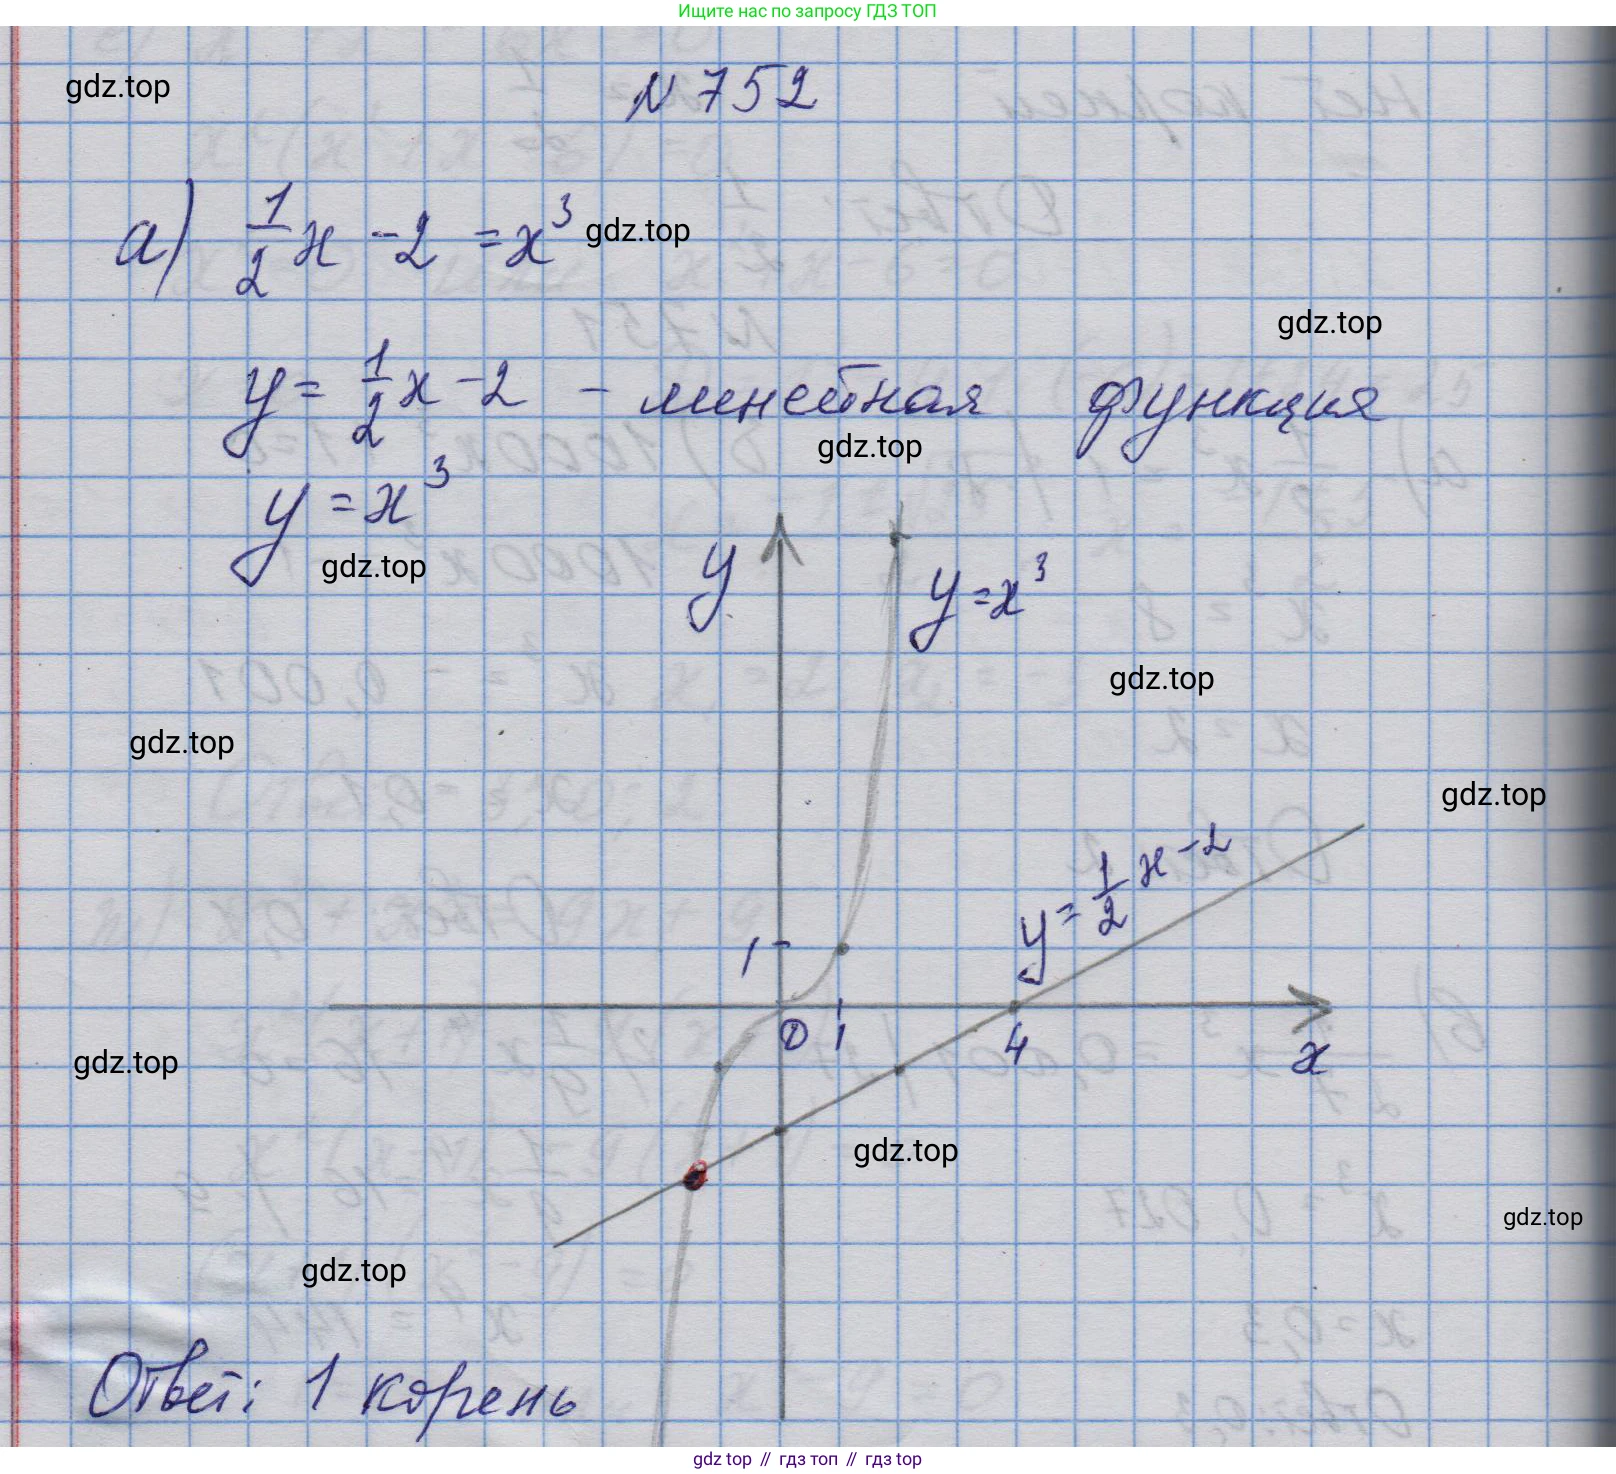 Ищите нас по запросу ГДЗ ТОП
gdz.top
N 752
а) 1/2 x - 2 = x³ gdz.top
gdz.top
y = 1/2 x - 2 - линейная функция
gdz.top
y = x³
gdz.top
y
y = x³
gdz.top
gdz.top
gdz.top
y = 1/2 x - 2
1
0 1 4 x
gdz.top
gdz.top
gdz.top
gdz.top
Ответ: 1 корень
gdz.top // гдз топ // гдз.top